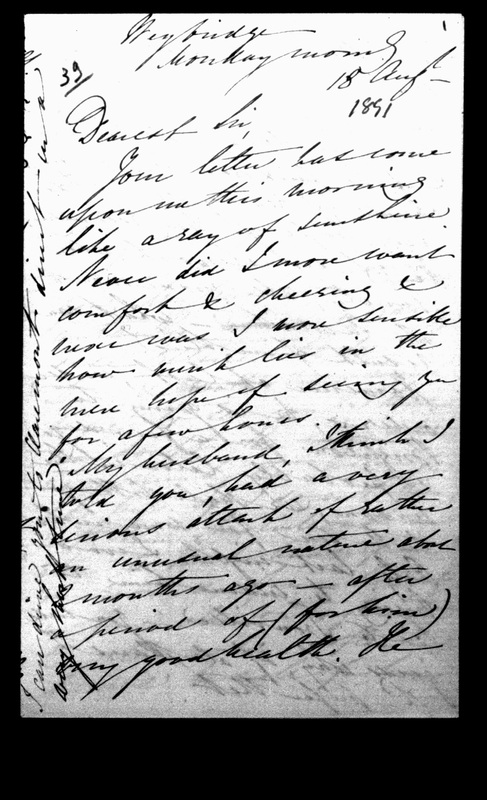 39
1
Weybridge
Monday morng
18 Augt
1891
Dearest Sir,
Your letter has come
upon me this morning
like a ray of sunshine.
Never did I more want
comfort & cheering &
never was I more sensible
how much lies in the
mere hope of seeing you
for a few hours.
My husband, I think I
told you, had a very
serious attack of rather
an unusual nature about
2 months ago — after
a period of (for him)
very good health. He
I can drive you to Claremont